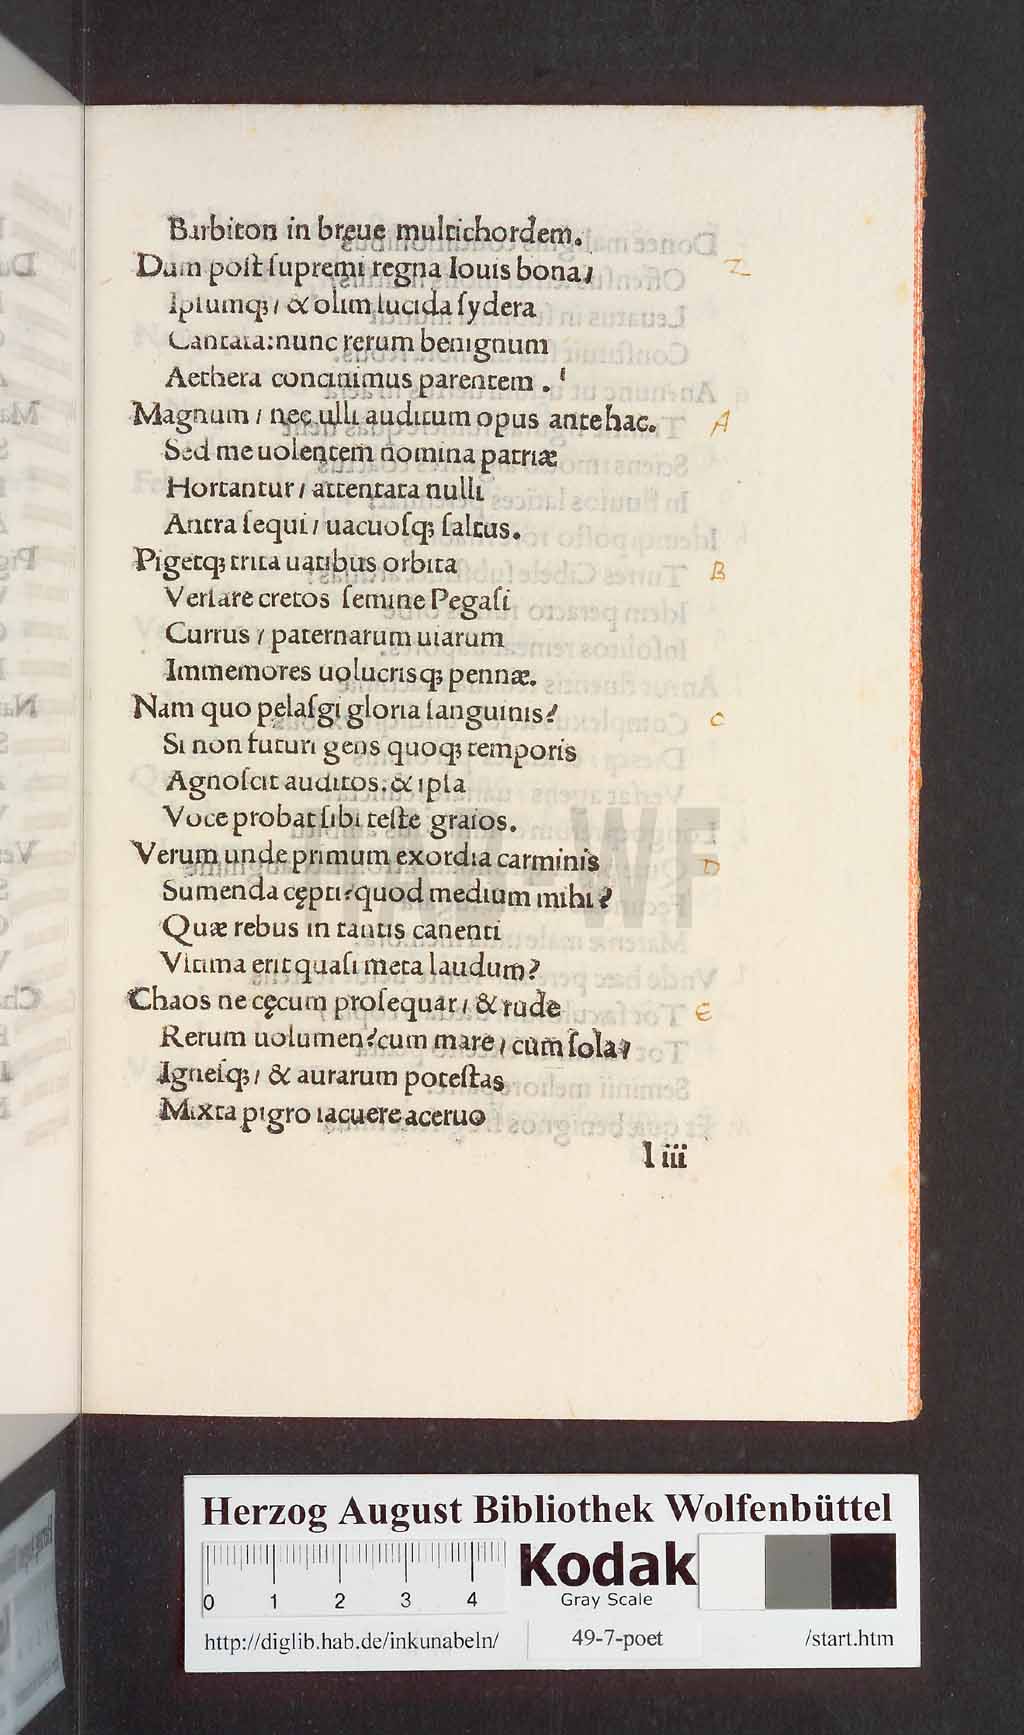 Barbiton in breue multichordem.
Dum post supremi regna Iouis bona/ Z
Ipsumq3/ & olim lucida sydera
Cantata:nunc rerum benignum
Aethera concinimus parentem.
Magnum/ nec ulli auditum opus antehac. A
Sed me uolentem nomina patriæ
Hortantur/ attentata nulli
Antra sequi/ uacuosq3 saltus.
Pigetq3 trita uatibus orbita B
Versare cretos semine Pegasi
Currus/ paternarum uiarum
Immemores uolucrisq3 pennæ.
Nam quo pelasgi gloria sanguinis? C
Si non futuri gens quoq3 temporis
Agnoscit auditos.& ipsa
Voce probat sibi teste graios.
Verum unde primum exordia carminis D
Sumenda cępti?quod medium mihi?
Quæ rebus in tantis canenti
Vltima erit quasi meta laudum?
Chaos ne cęcum prosequar/ & rude E
Rerum uolumen?cum mare/ cum sola/
Igneisq3/ & aurarum potestas
Mixta pigro iacuere aceruo
l iii
HAB-WF
Herzog August Bibliothek Wolfenbüttel
0 1 2 3 4
Kodak
Gray Scale
http://diglib.hab.de/inkunabeln/ 49-7-poet /start.htm